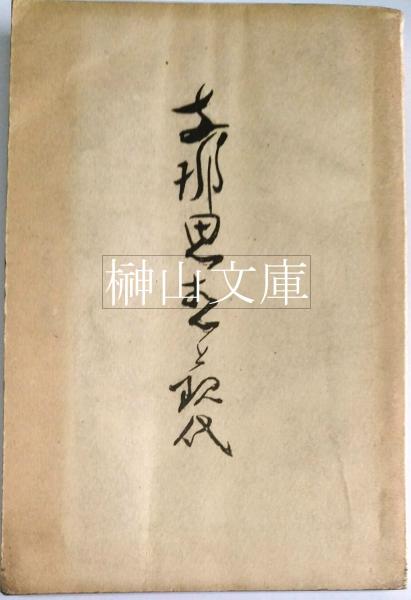 支那思想と現代
榊山文庫